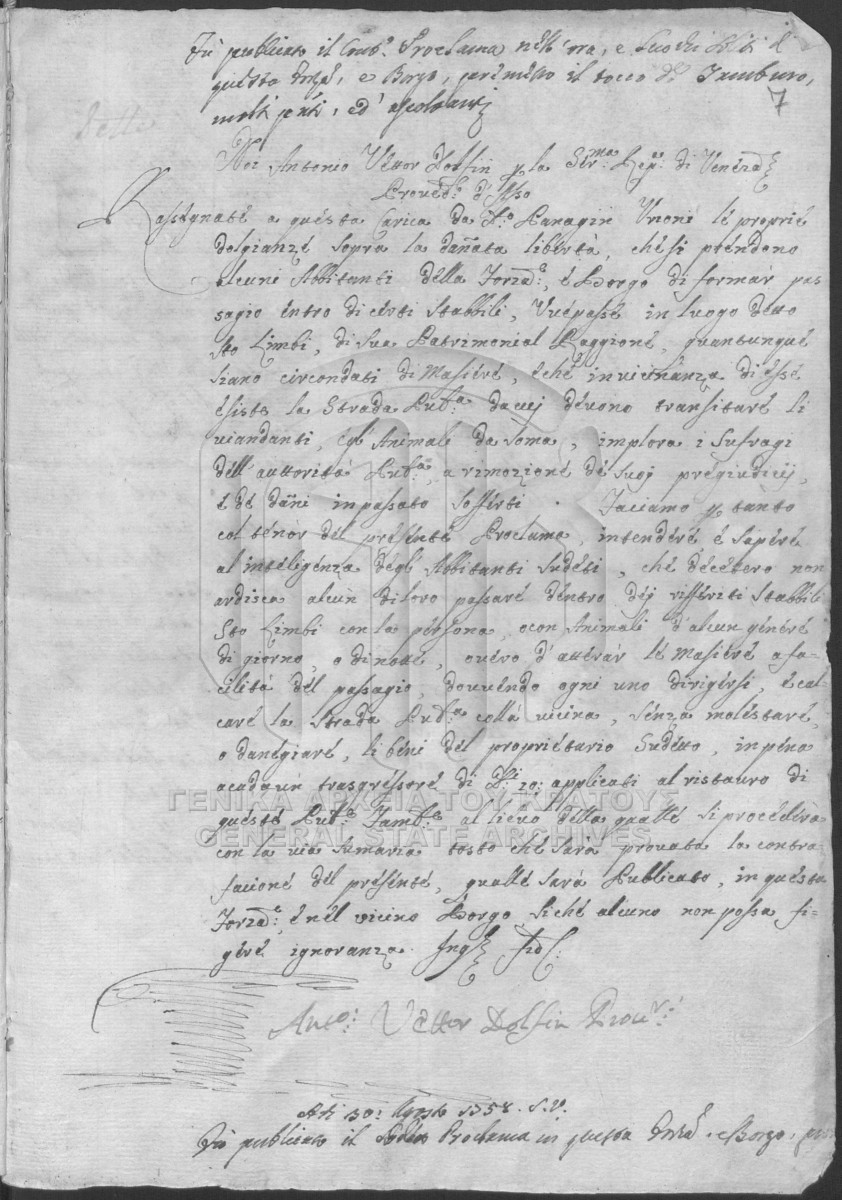 Fù publicato il Proclama nell'ora, e luochi soliti di
questa Forza, e Borgo, permesso il tocco di Tamburo,
molti p'nti, ed' ascoltanti
7
Noi Antonio Vettor Dolfin p la Ser:ma Rep:a di Venezia
Proved:r d'Asso
Rassegnate a questa Carica da Panagin Vrioni le proprie
dolgianze sopra la dañata libertà, che si p'tendono
alcuni Abbitanti della Forza:, è Borgo di formar pas
sagio entro di certi Stabbili, Vuepasse in luogo detto
Sto Limbi, di sua Patrimonial Raggione, quantunque
siano circondati di Masiere, è che in vicinanza di esse
esista la Strada Pub:a da cui devono transitare li
viandanti, e gl'Animali da Soma, implora i Sufragi
dell'auttorità Pub:a, a rimozione de suoj pregiudicij,
e de dañi in passato sofferti. Faciamo p tanto
col tenor del presente Proclama, intendere è sapere
al inteligenza degl'Abbitanti sudeti, che de cetero non
ardisca alcun di loro passare dentro dej rifferiti Stabbili
Sto Limbi con la persona, o con Animali d'alcun genere
di giorno, o di notte, overo d'atterar le Masiere a fa=
cilità del passagio, dovendo ogni uno dirigersi, è cal
care la Strada Pub:a collà vicina, senza molestare,
o danegiare, li beni del proprietario Sudetto, in pena
a cadaun trasgressore di D:ti 10: applicati al ristauro di
queste Pub:e Fam:e al lievo della qualle si procederà
con la via sumaria tosto che sarà provata la contra
facione del presente, qualle sarà Publicato, in questa
Forza: è nel vicino Borgo siche alcuno non possa fi=
gere ignoranza.
Anto: Vettor Dolfin Prov:r
Adi 30: Agosto 1758. S.V.
Fù publicato il Sudeto Proclama in questa Forza. e Borgo,
ΓΕΝΙΚΑ ΑΡΧΕΙΑ ΤΟΥ ΚΡΑΤΟΥΣ
GENERAL STATE ARCHIVES